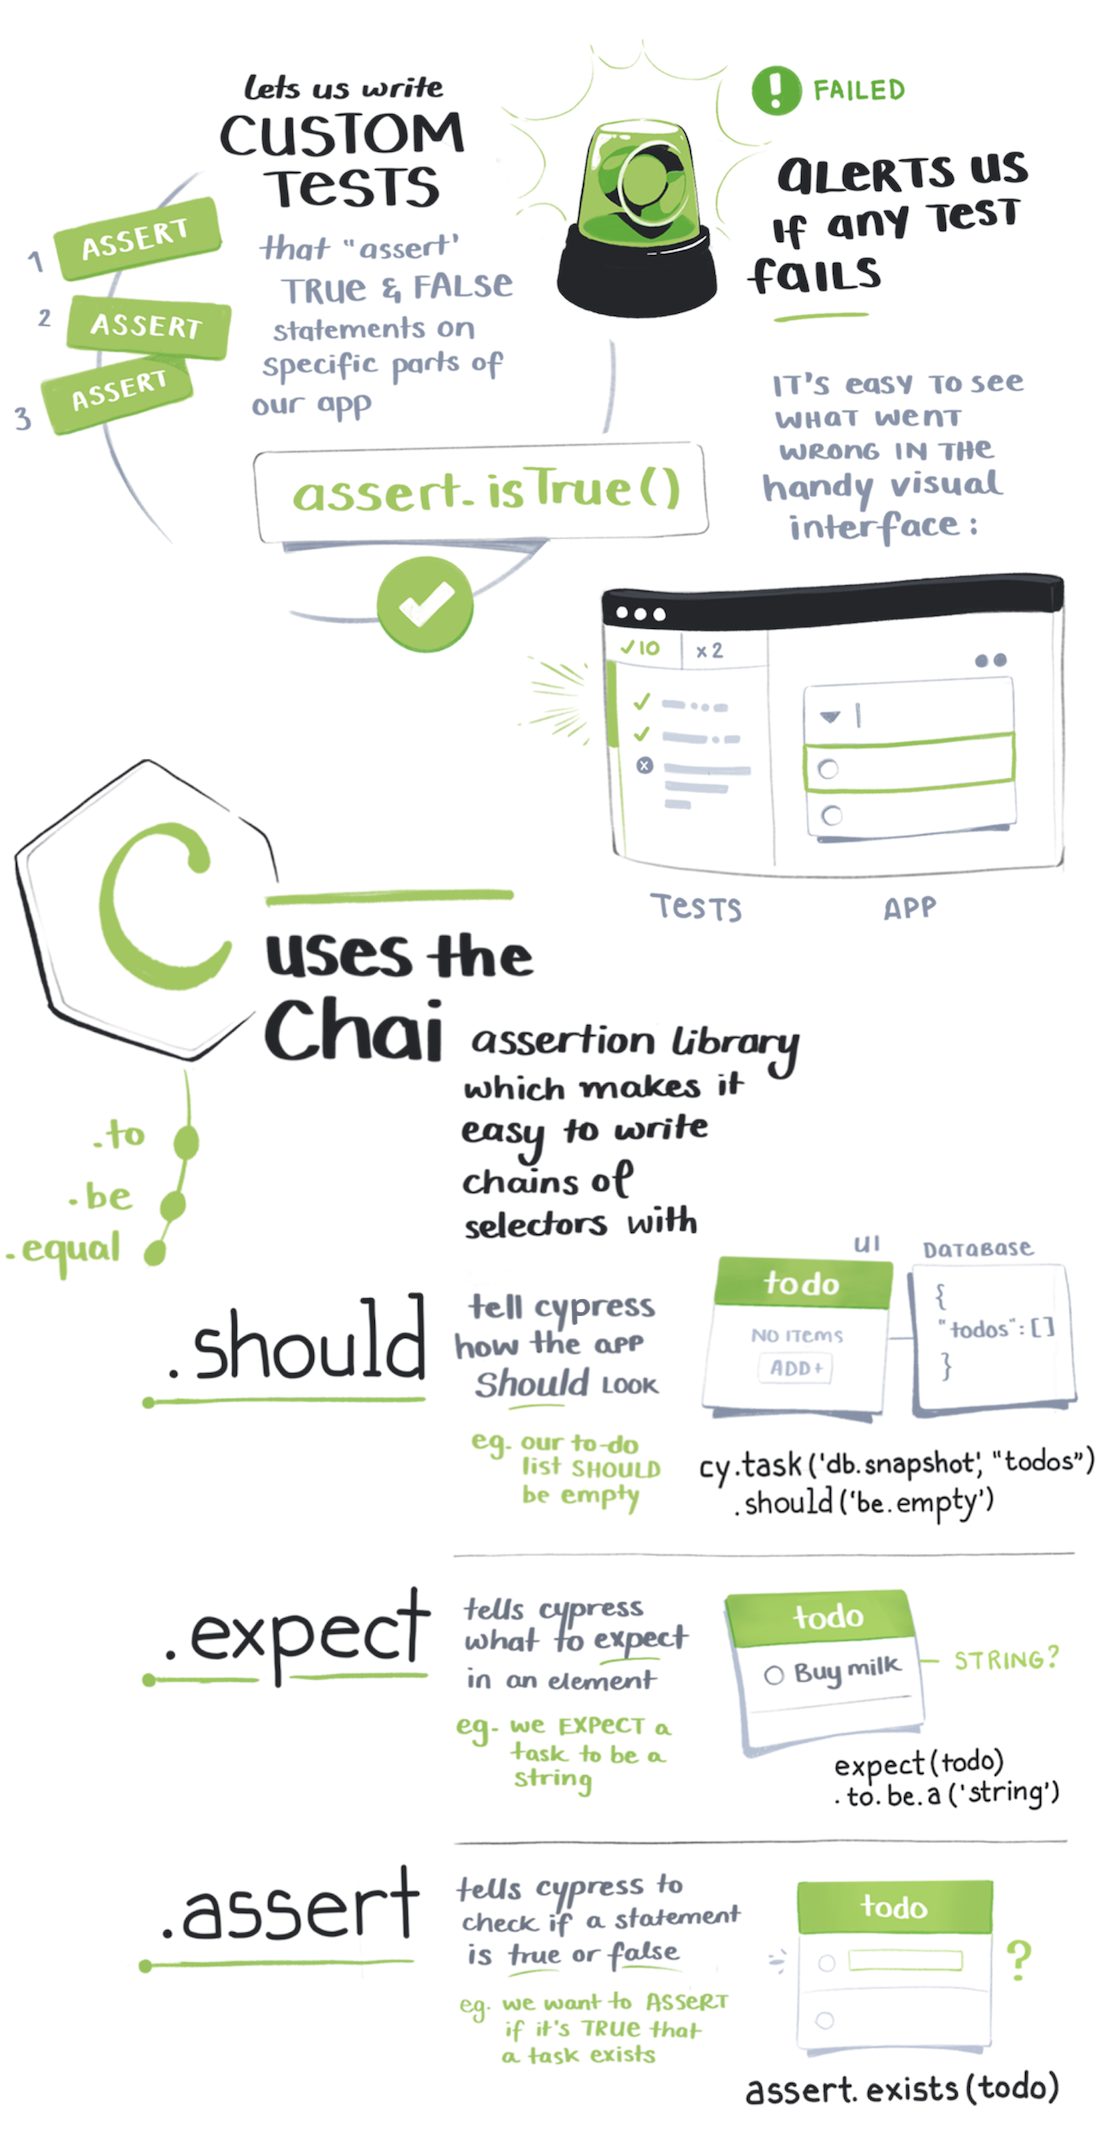 lets us write
CUSTOM
TESTS
that "assert'
TRUE & FALSE
statements on
specific parts of
our app
1 ASSERT
2 ASSERT
3 ASSERT
assert.isTrue()
! FAILED
ALERTS US
IF ANY TEST
FAILS
IT'S easy TO see
WHAT WENT
WRONG IN THE
handy visual
interface:
✓10 x2
TESTS
APP
C
uses the
Chai assertion library
which makes it
easy to write
chains of
selectors with
.to
.be
.equal
.should
tell cypress
how the APP
Should LOOK
eg. our to-do
list SHOULD
be empty
UI
todo
NO ITEMS
ADD+
DATABASE
{
"todos":[]
}
cy.task('db.snapshot', "todos")
.should('be.empty')
.expect
tells cypress
what to expect
in an element
eg. we EXPECT a
task to be a
string
todo
Buy milk
STRING?
expect(todo)
.to.be.a('string')
.assert
tells cypress to
check if a statement
is true or false
eg. we want to ASSERT
if it's TRUE that
a task exists
todo
?
assert.exists(todo)